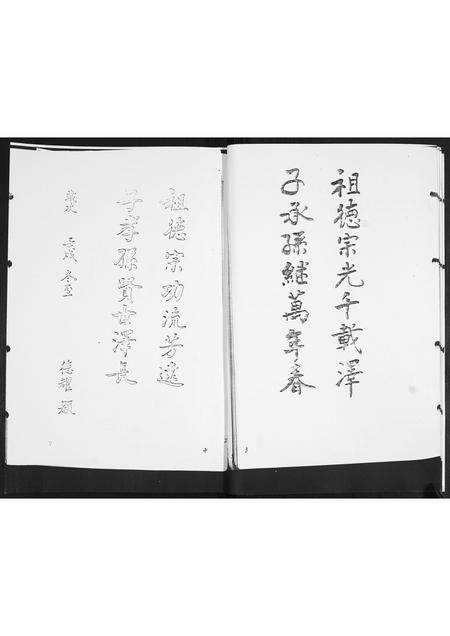 祖德宗光千載澤
子承孫繼萬年春
3
祖德宗功流芳遠
子孝孫賢世澤長
歲次 壬戌 冬至
德耀 題
4